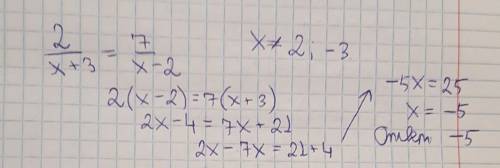 2/(x+3) = 7/(x-2)   x ≠ 2; -3
2(x-2) = 7(x+3)
2x-4 = 7x+21
2x-7x = 21+4
-5x = 25
x = -5
Ответ -5